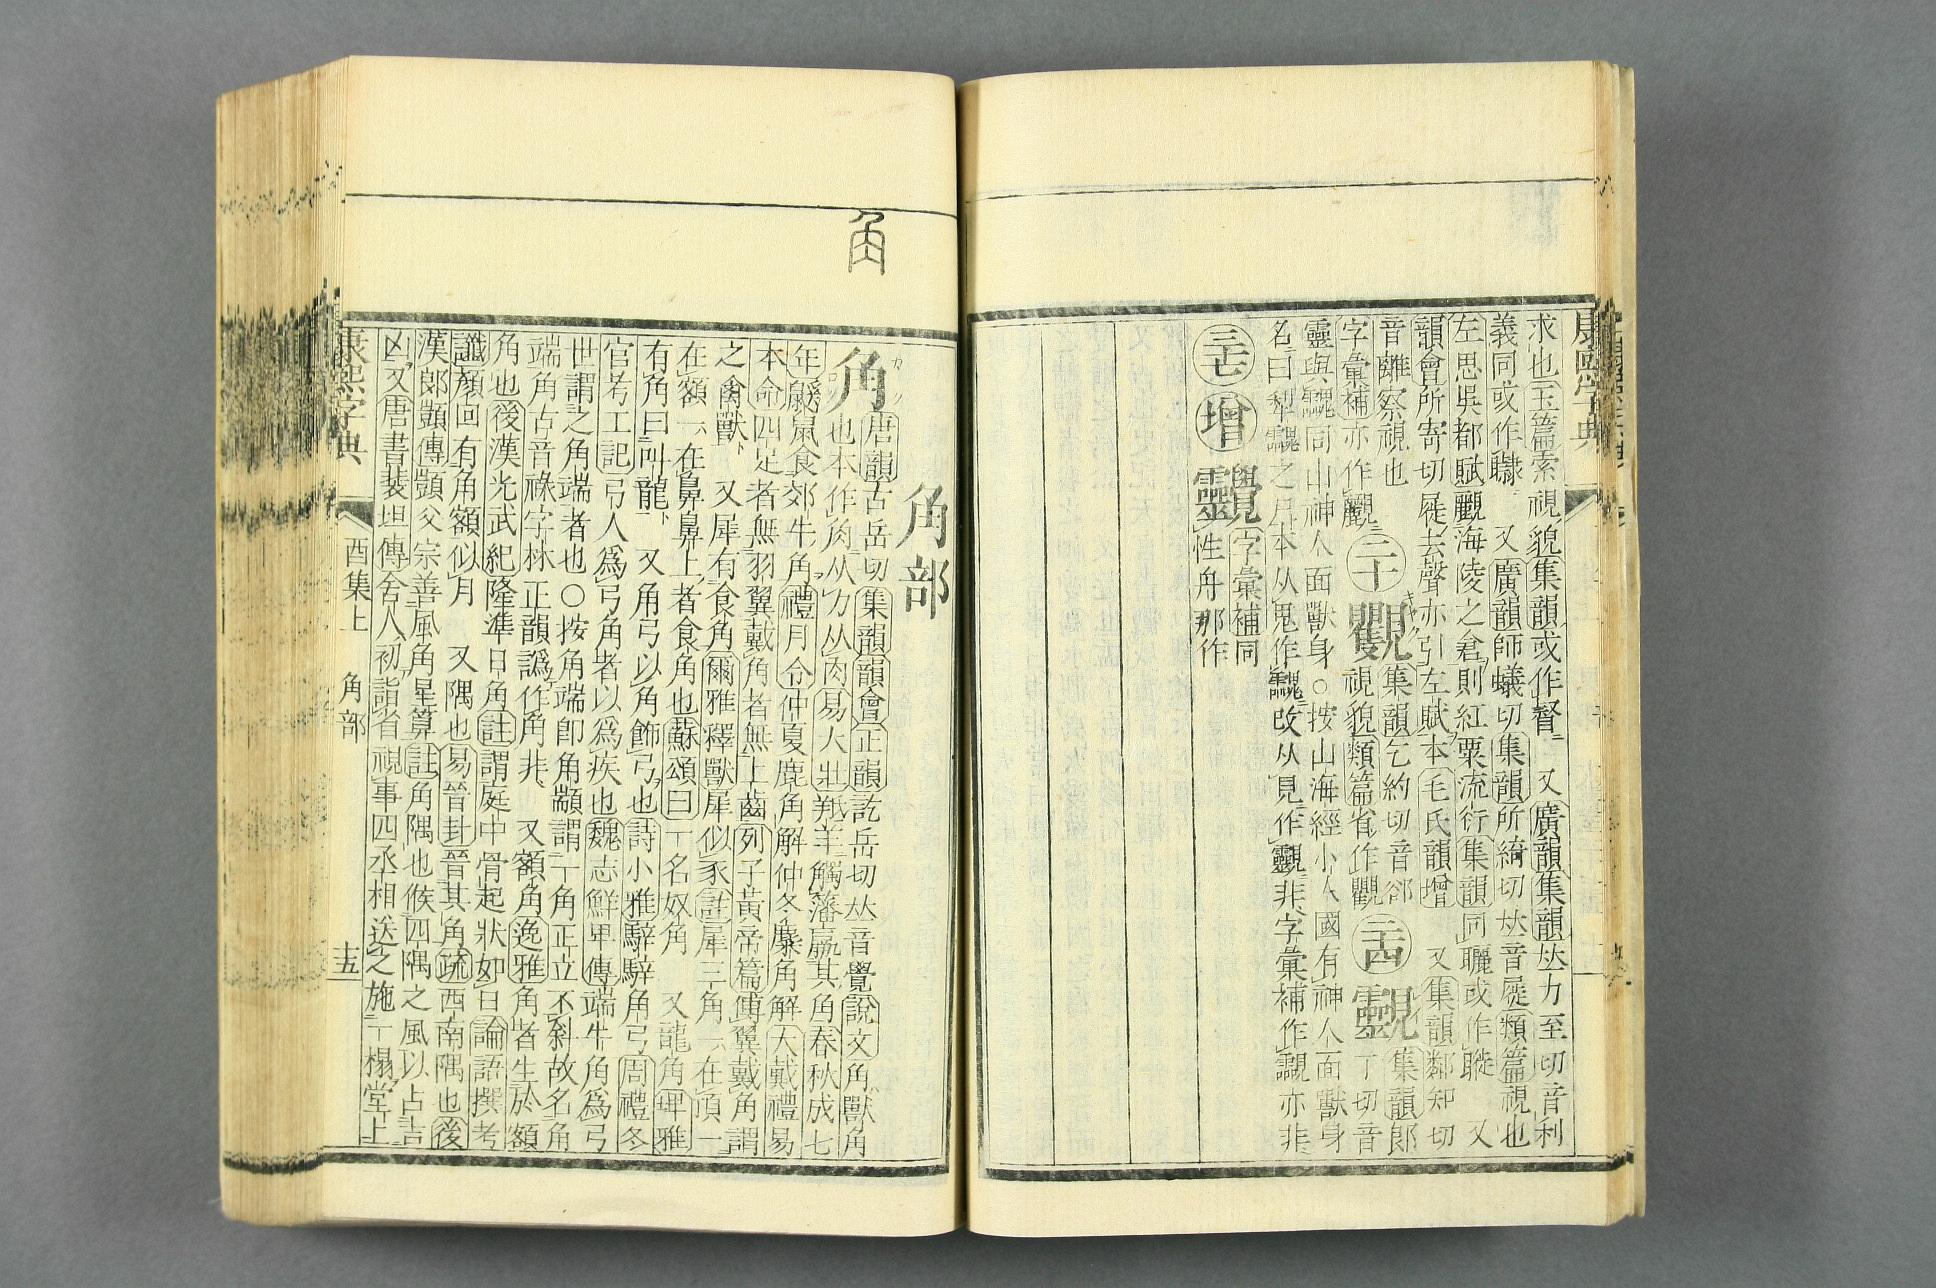 求也玉篇索視貌集韻或作督 又廣韻集韻𠀤力至切音利
義同或作隸 又廣韻師蟻切集韻所綺切𠀤音屣類篇視也
左思吳都賦覼海陵之倉則紅粟流衍集韻同矖或作 又
韻會所寄切屣去聲亦引左賦本毛氏韻增 又集韻鄰知切
音離察視也
字彙補亦作
二十
集韻乞約切音郤
視貌類篇省作
二十四
集韻郎
丁切音
靈與同山神人面獸身○按山海經小人國有神人面獸身
名曰之尸本从鬼作改从見作非字彙補作亦非
三十七
增
字彙補同
性舟那作
角
角部
角
カク
唐韻古岳切集韻韻會正韻訖岳切𠀤音覺說文角獸角
也本作从力从肉易大壯羝羊觸藩羸其角春秋成七
年鼷鼠食郊牛角禮月令仲夏鹿角解仲冬麋角解大戴禮易
本命四足者無羽翼戴角者無上齒列子黃帝篇傅翼戴角謂
之禽獸 又犀有食角爾雅釋獸犀似豕註犀三角一在頂一
在額一在鼻鼻上者食角也蘇頌曰一名奴角 又龍角埤雅
有角曰虯龍 又角弓以角飾弓也詩小雅騂騂角弓周禮冬
官考工記弓人爲弓角者以爲疾也魏志鮮卑傳端牛角爲弓
世謂之角端者也○按角端卽角顓謂一角正立不斜故名角
端角占音祿字林正韻譌作角非 又額角逸雅角者生於額
角也後漢光武紀隆準日角註謂庭中骨起狀如日論語撰考
讖顏回有角額似月 又隅也易晉卦晉其角疏西南隅也後
漢郎顗傳顗父宗善風角星算註角隅也候四隅之風以占吉
凶 又唐書裴坦傳舍人初詣省視事四丞相送之施一榻堂上
康熙字典
酉集上 角部
十五
康熙字典